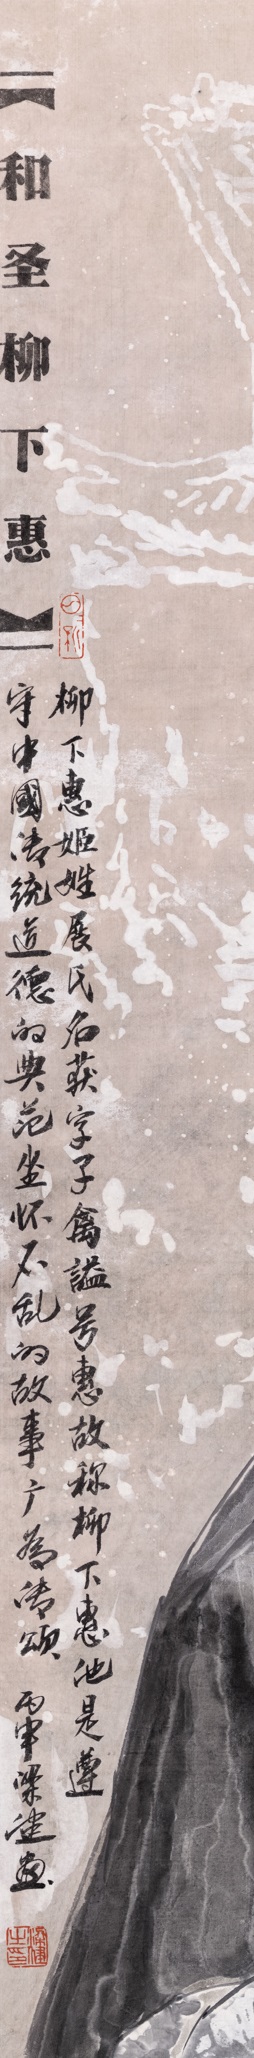 【和圣柳下惠】
柳下惠姬姓展氏名获字子禽谥号惠故称柳下惠他是遵
守中國传统道德的典范坐怀不乱的故事广为传颂 丙申梁健画
梁健之印